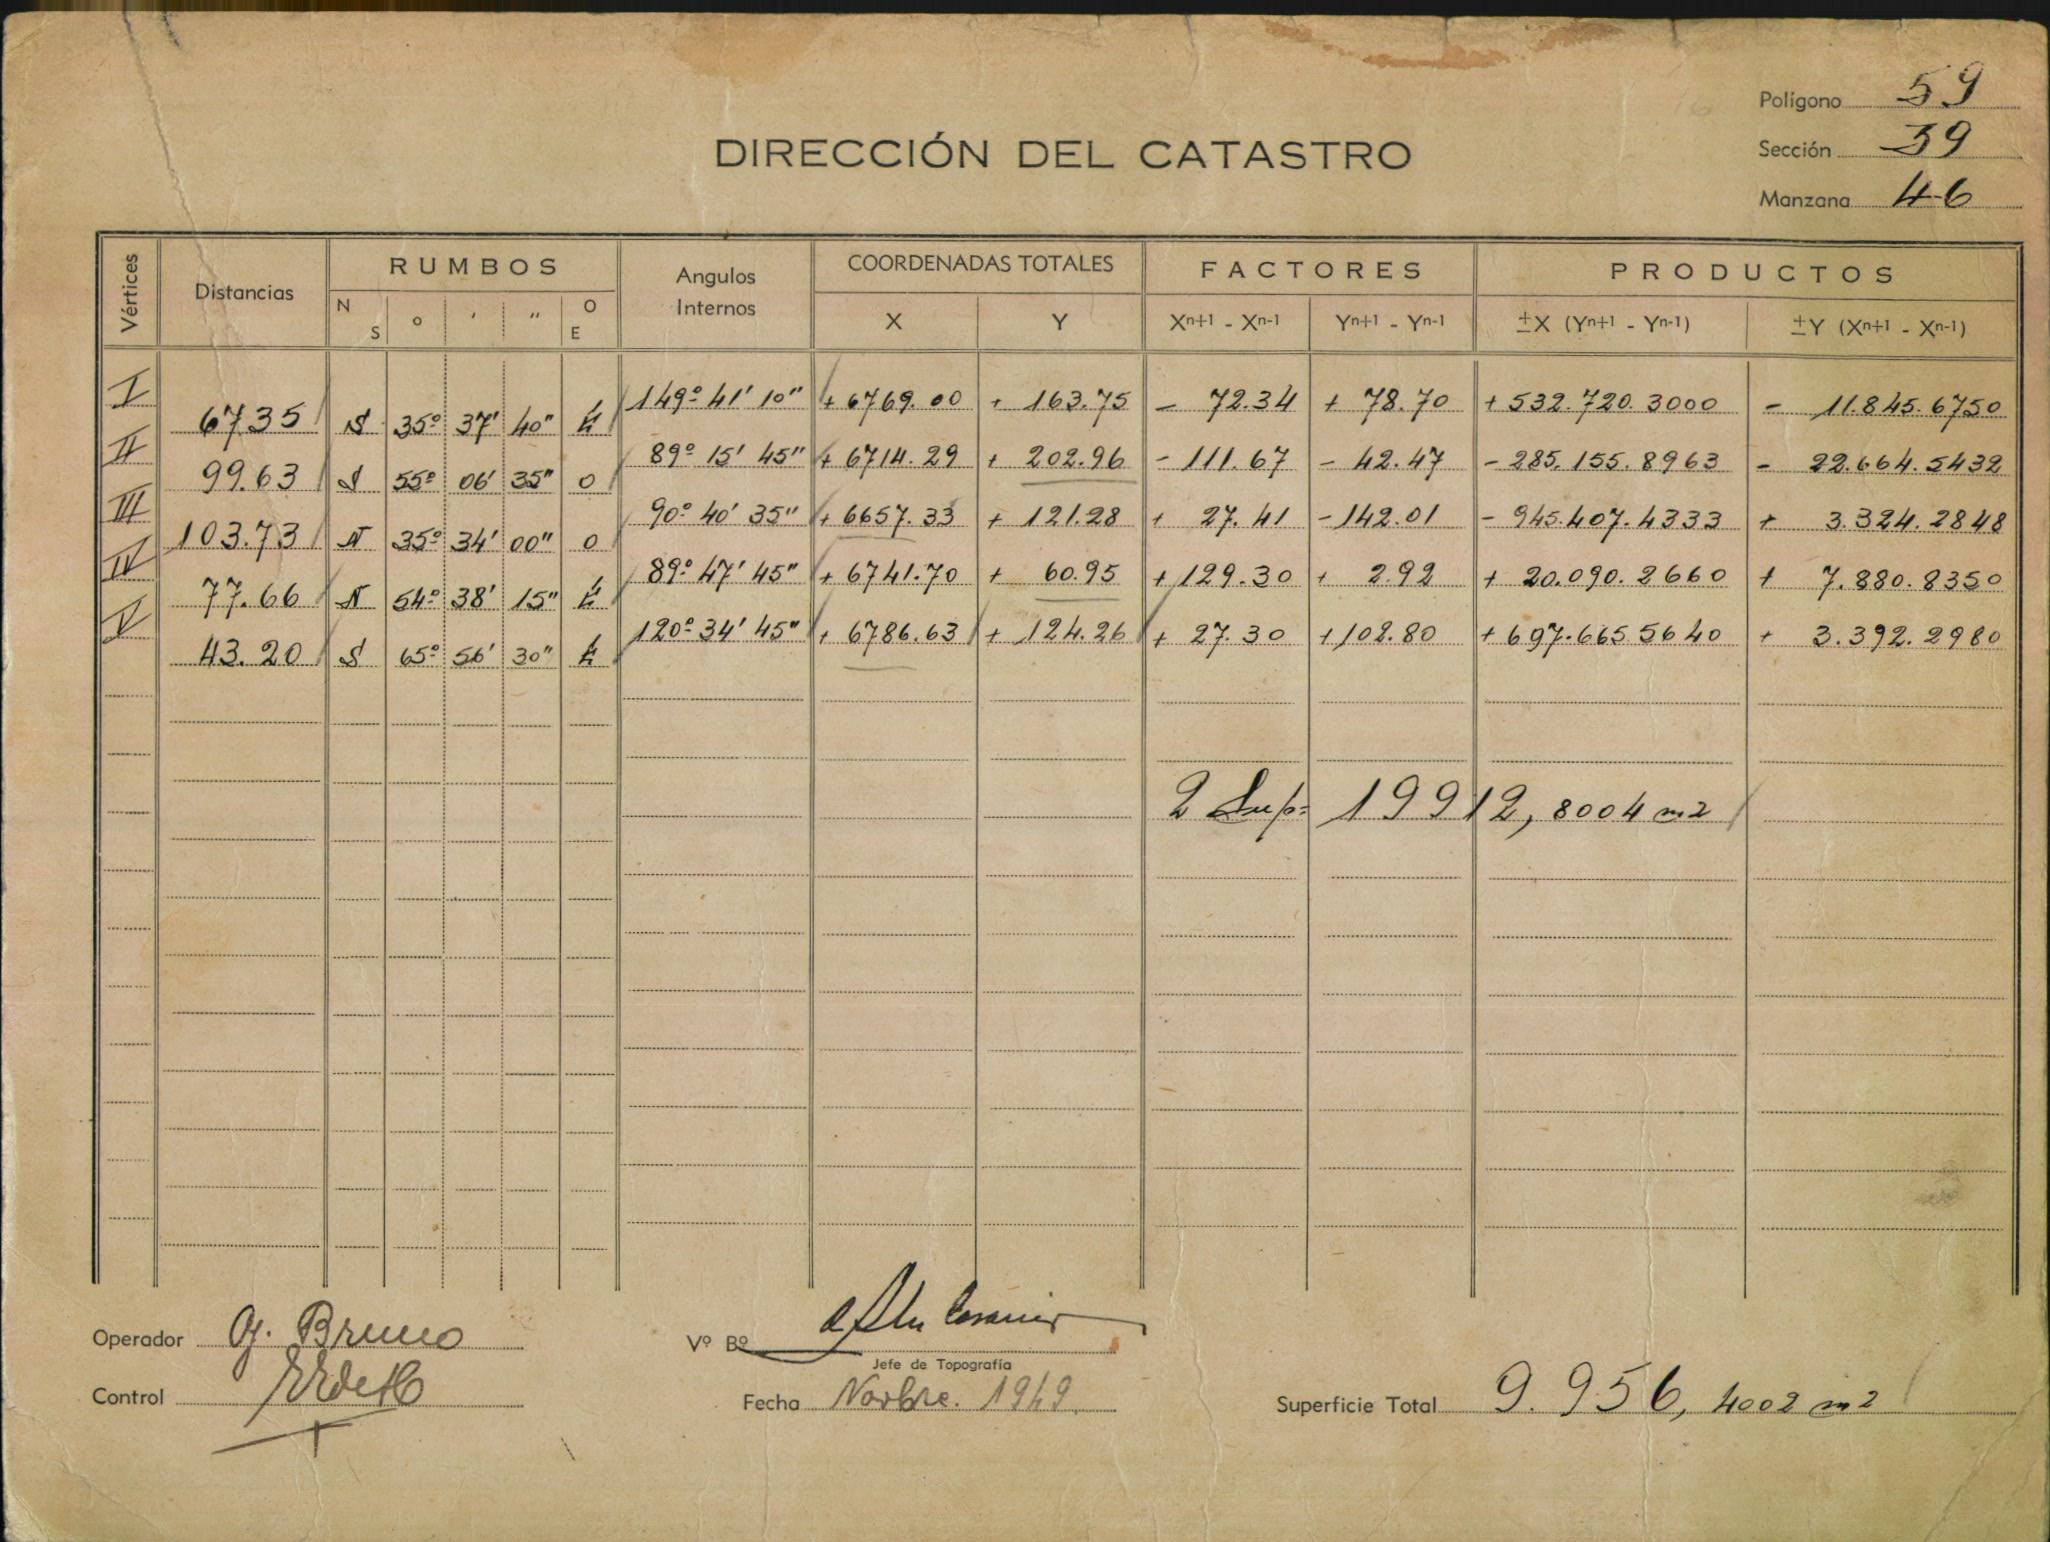 Polígono 59
DIRECCIÓN DEL CATASTRO
Sección 39
Manzana 46
Vértices Distancias RUMBOS Angulos Internos COORDENADAS TOTALES FACTORES PRODUCTOS
N S ° ' " O E X Y Xⁿ⁺¹ - Xⁿ⁻¹ Yⁿ⁺¹ - Yⁿ⁻¹ ±X (Yⁿ⁺¹ - Yⁿ⁻¹) ±Y (Xⁿ⁺¹ - Xⁿ⁻¹)
I 149º 41' 10" + 6769.00 + 163.75 - 72.34 + 78.70 + 532.720.3000 - 11.845.6750
67.35 S 35º 37' 40" E
II 89º 15' 45" + 6714.29 + 202.96 - 111.67 - 42.47 - 285.155.8963 - 22.664.5432
99.63 S 55º 06' 35" O
III 90º 40' 35" + 6657.33 + 121.28 + 27.41 - 142.01 - 945.407.4333 + 3.324.2848
103.73 N 35º 34' 00" O
IV 89º 47' 45" + 6741.70 + 60.95 + 129.30 + 2.92 + 20.090.2660 + 7.880.8350
77.66 N 54º 38' 15" E
V 120º 34' 45" + 6786.63 + 124.26 + 27.30 + 102.80 + 697.665.5640 + 3.392.2980
43.20 S 65º 56' 30" E
2 Sup= 19912, 8004 m2
Operador G. Bruno
Vº Bº
Jefe de Topografía
Control
Fecha Novbre. 1949.
Superficie Total 9.956, 4002 m2